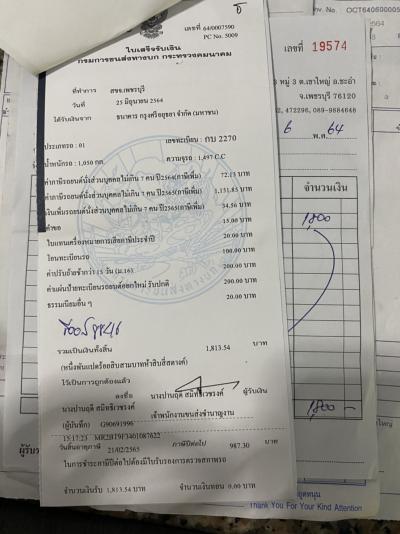 No. OCT6406000
เลขที่ 64/0007590
PC No. 5009
ใบเสร็จรับเงิน
กรมการขนส่งทางบก กระทรวงคมนาคม
ที่ทำการ สขจ.เพชรบุรี
วันที่ 25 มิถุนายน 2564
ได้รับเงินจาก ธนาคาร กรุงศรีอยุธยา จำกัด (มหาชน)
ประเภทรถ : 01 เลขทะเบียน : กบ 2270
น้ำหนักรถ : 1,050 กก. ความจุรถ : 1,497 C.C
ค่าภาษีรถยนต์นั่งส่วนบุคคลไม่เกิน 7 คน ปี2564(ภาษีเพิ่ม) 72.13 บาท
ค่าภาษีรถยนต์นั่งส่วนบุคคลไม่เกิน 7 คน ปี2565(ภาษีเพิ่ม) 1,131.85 บาท
เงินเพิ่มรถยนต์นั่งส่วนบุคคลไม่เกิน 7 คน ปี2565(ภาษีเพิ่ม) 34.56 บาท
ค่าขอ 15.00 บาท
ใบแทนเครื่องหมายการเสียภาษีประจำปี 20.00 บาท
โอนทะเบียนรถ 100.00 บาท
ค่าปรับย้ายช้ากว่า 15 วัน (ม.16) 200.00 บาท
ค่าแผ่นป้ายทะเบียนรถยนต์ออกใหม่ รับปกติ 200.00 บาท
ธรรมเนียมอื่น ๆ 20.00 บาท
รวมเป็นเงินทั้งสิ้น 1,813.54 บาท
(หนึ่งพันแปดร้อยสิบสามบาทห้าสิบสี่สตางค์)
ไว้เป็นการถูกต้องแล้ว
ลงชื่อ ผู้รับเงิน
นางปานฤดี สมิทธิเวชรงค์
นางปานฤดี สมิทธิเวชรงค์ เจ้าพนักงานขนส่งชำนาญงาน
(ผู้บันทึก) G90691996
15:17:23 MR2B19F3401087622
วันสิ้นอายุภาษี 21/02/2565 ภาษีปีต่อไป 987.30 บาท
ในการชำระภาษีปีต่อไปต้องมีใบรับรองการตรวจสภาพรถ
จำนวนเงินรับ 1,813.54 บาท จำนวนเงินทอน 0.00 บาท
เลขที่ 19574
หมู่ 3 ต.เขาใหญ่ อ.ชะอำ
จ.เพชรบุรี 76120
472296, 089-9884648
6 พ.ศ. 64
จำนวนเงิน
1,800
1,800 -
Thank You For Your Kind Attention